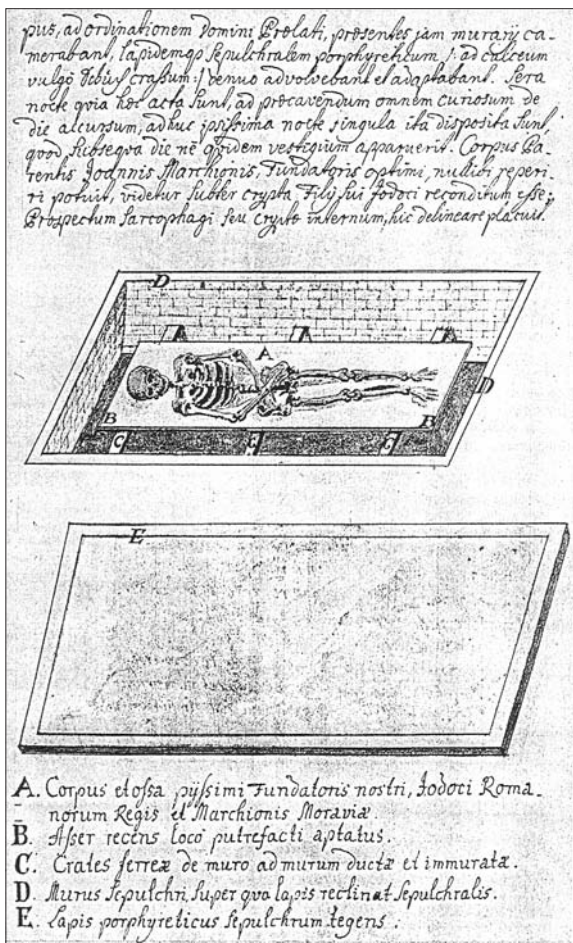 pus, ad ordinationem Domini Prælati, præsentes jam murarij ca-
merabant, lapidemq3 Sepulchralem porphyreticum /: ad calceum
vulgo Schuy crassum :/ denuo advolvebant et adaptabant. Sera
nocte quia hoc acta sunt, ad præcavendum omnem curiosum de
die alcursum, adhuc ipsissima nocte singula ita disposita sunt,
quod subsequa die nē quidem vestigium apparuerit. Corpus Pa-
rentis Joannis Marchionis, Fundatoris optimi, nullibi reperi-
ri potuit, videtur subter crypta Filij sui Jodoci reconditum esse;
Prospectum sarcophagi seu Cryptæ internum, hic delineare placuit.
D
A
D
B
B
C
C
C
E
A. Corpus et ossa pijssimi Fundatoris nostri, Jodoci Roma-
norum Regis et Marchionis Moraviæ.
B. Asser recens loco putrefacti aptatus.
C. Crates ferreæ de muro ad murum ductæ et immuratæ.
D. Murus Sepulchri, super quo lapis reclinat Sepulchralis.
E. Lapis porphyreticus Sepulchrum tegens.